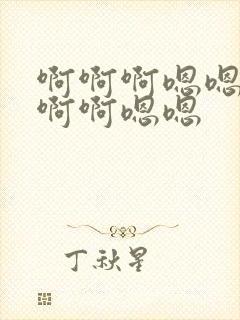 啊啊啊嗯嗯
啊啊嗯嗯
丁秋星